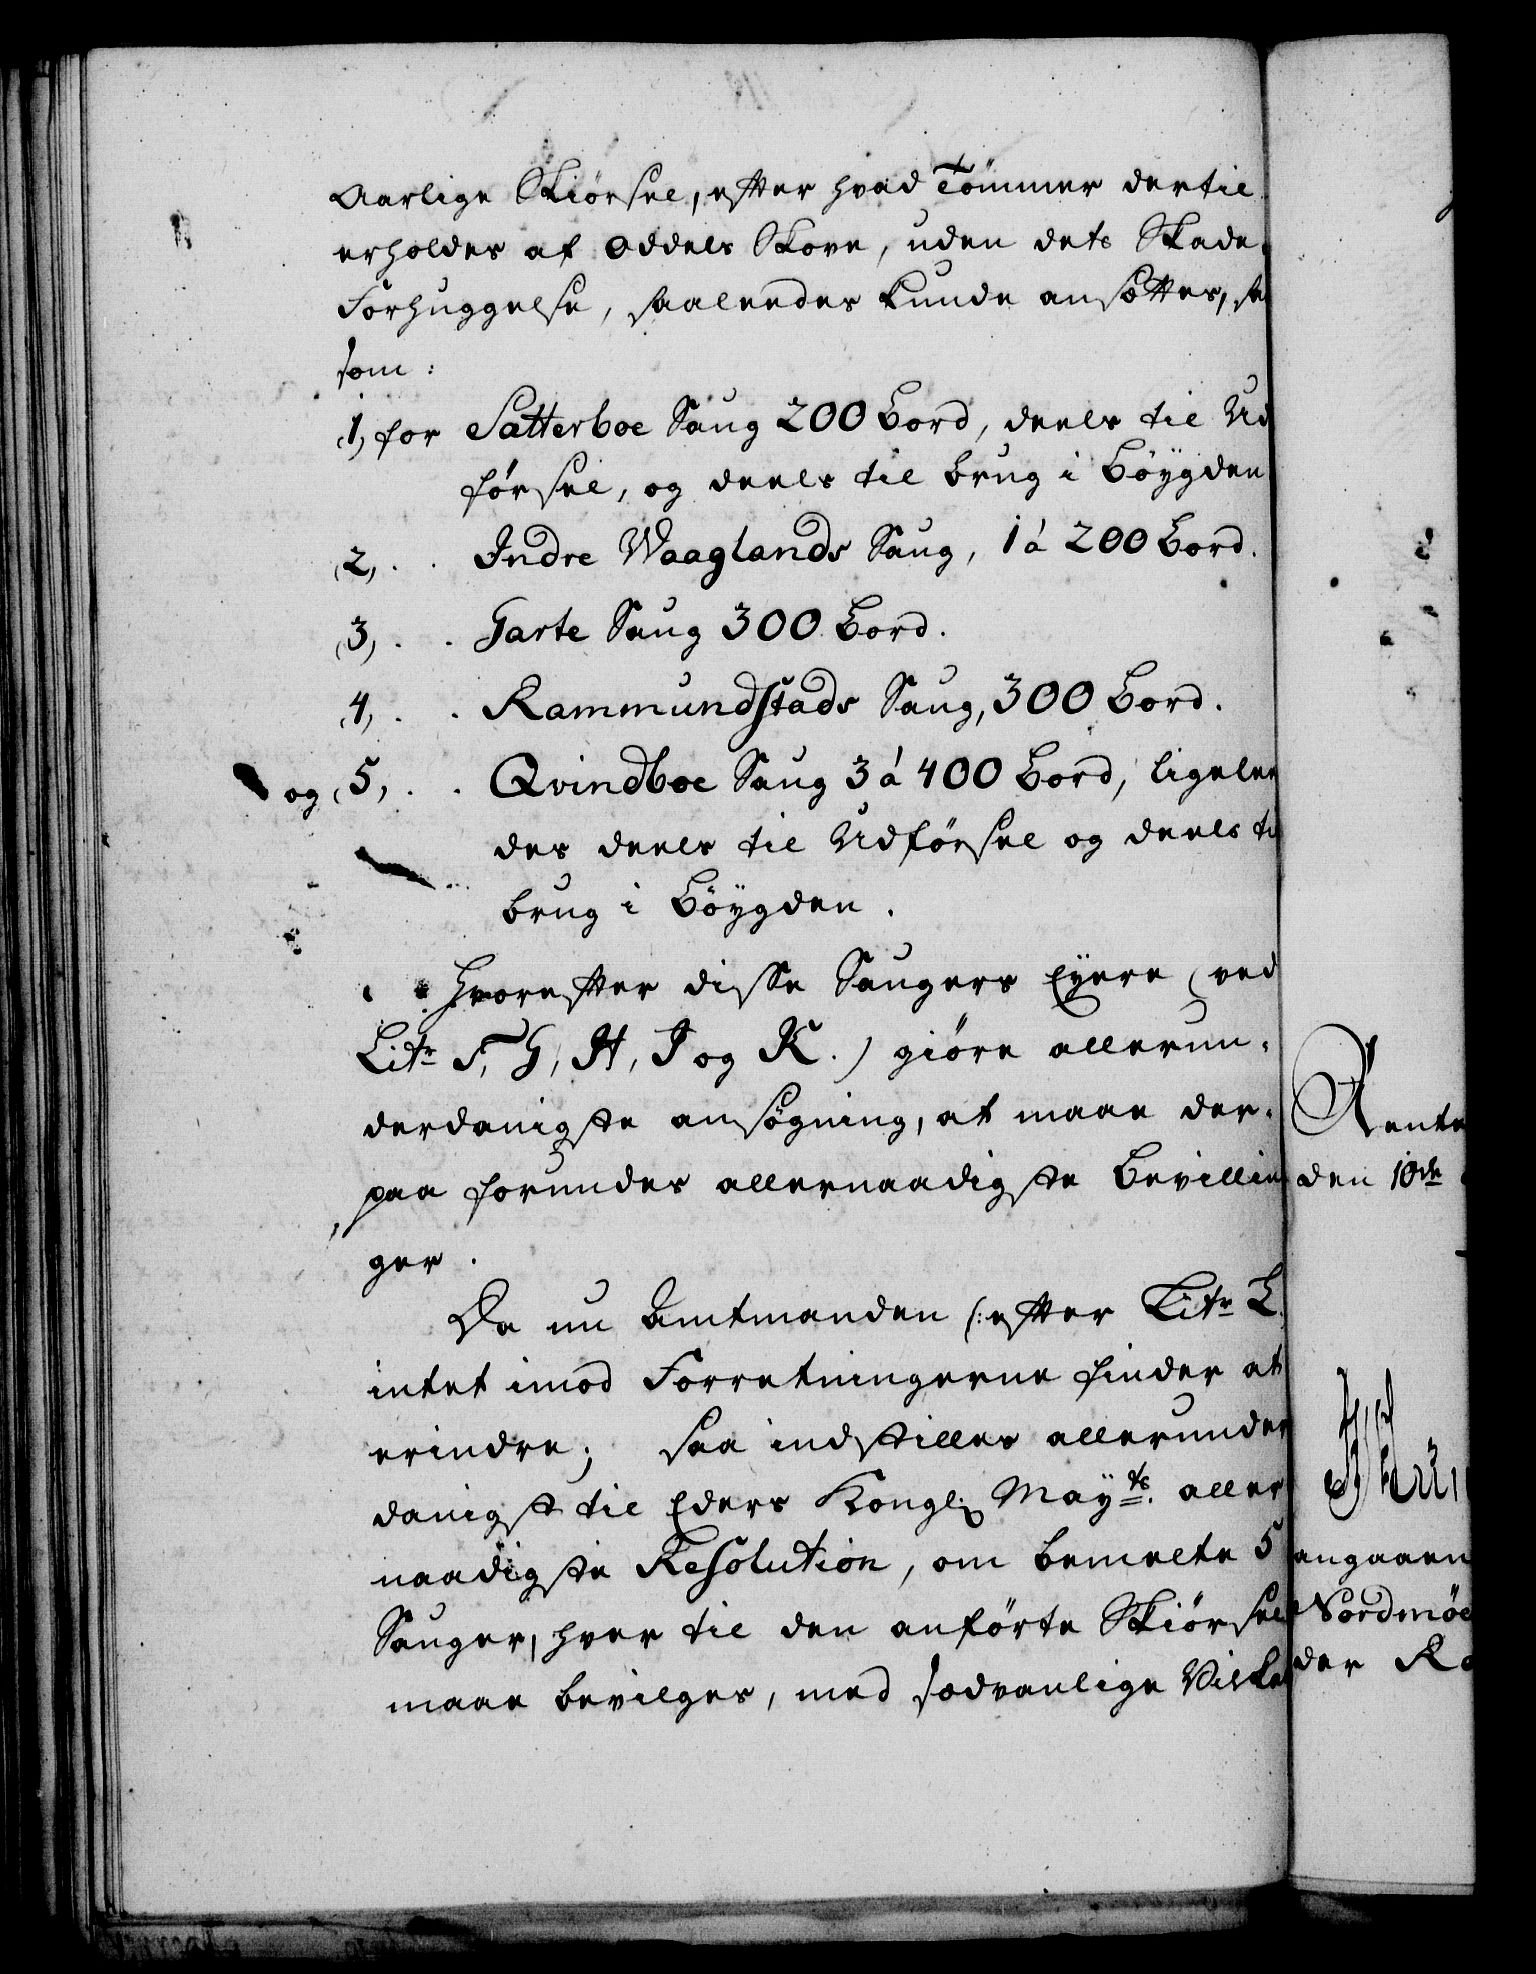 Aarlige Skiørsel, efter hvad Tømmer dertil
erholdes af Oddels Skove, uden dets Skade,
Forhuggelse, saaleedes kunde ansættes, sa
som:
1, for Satterboe Saug 200 Bord, deels til Ud
førsel, og deels til brug i Bøygden
(2, . . Indre Waaglands Saug, 1 à 200 Bord.
(3, . . Tarte Saug 300 Bord.
4, . . Rammundstads Saug, 300 Bord.
og (5, . . Qvindboe Saug 3 à 400 Bord, ligelee
des deels til Udførsel og deels ti
brug i Bøygden.
Hvorefter disse Saugers Eyere (ved
Litr F, G, H, I og K.) giøre allerun-
derdanigste ansøgning, at maae der-
paa forundes allernaadigste Bevillin
ger.
Da nu Amtmanden (: efter Litr L.
intet imod Forretningerne finder at
erindre; saa indstilles allerunder
danigst til Eders Kongl: Mayts. aller
naadigste Resolution, om bemelte 5
Sauger, hver til den anførte Skiørsel
maae bevilges, med sædvanlige Vilka
Rente
den 10de
angaaen
Nordmøe
der Ro